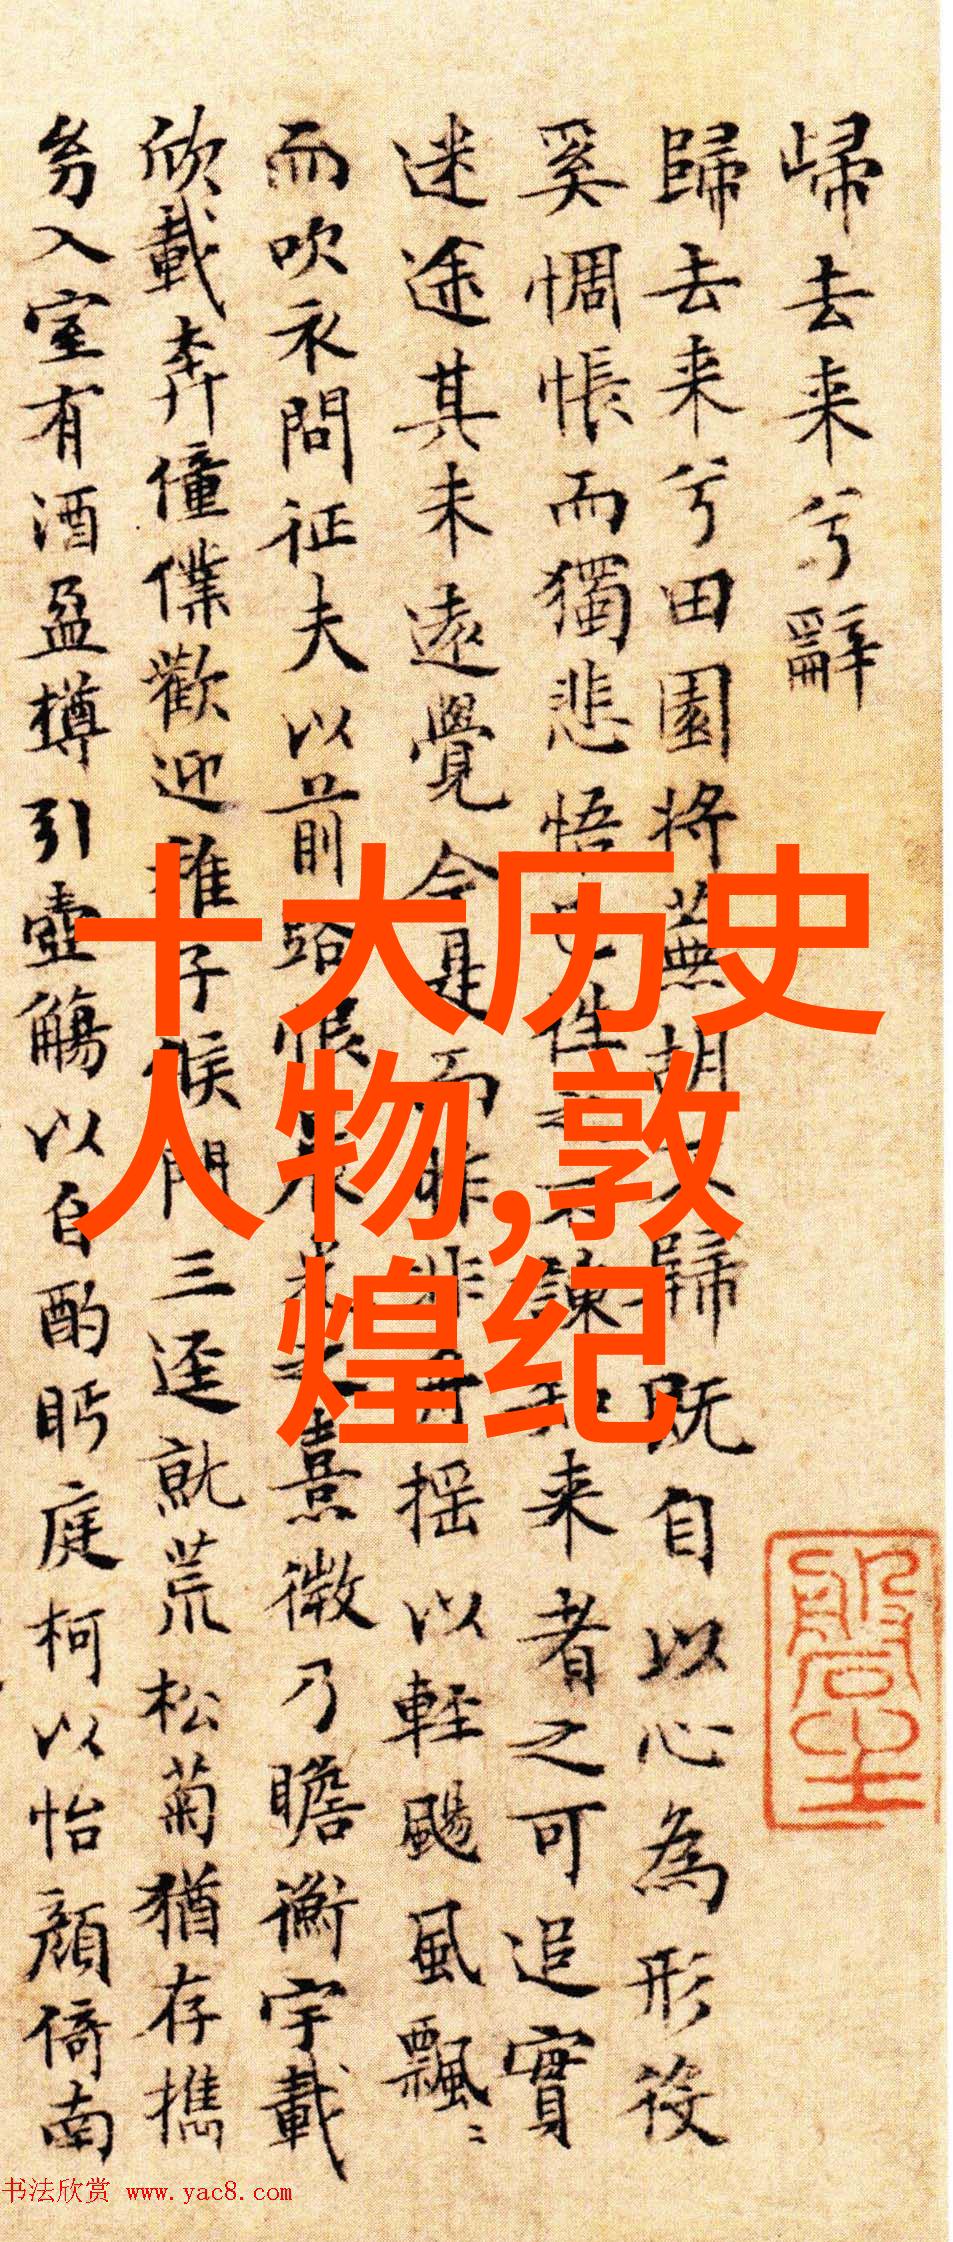 歸去来兮辭
歸去来兮田園将蕪胡不歸既自以心為形役
奚惆悵而獨悲悟已往之不諫知来者之可追實
迷途其未遠覺今是而昨非舟揺以輕颺風飄〻
而吹衣問征夫以前路恨晨光之熹微乃瞻衡宇載
欣載奔僮僕歡迎稚子候門三逕就荒松菊猶存携
幼入室有酒盈樽引壺觴以自酌眄庭柯以怡顔倚南
十大历史
人物,敦
煌纪
书法欣赏 www.yac8.com